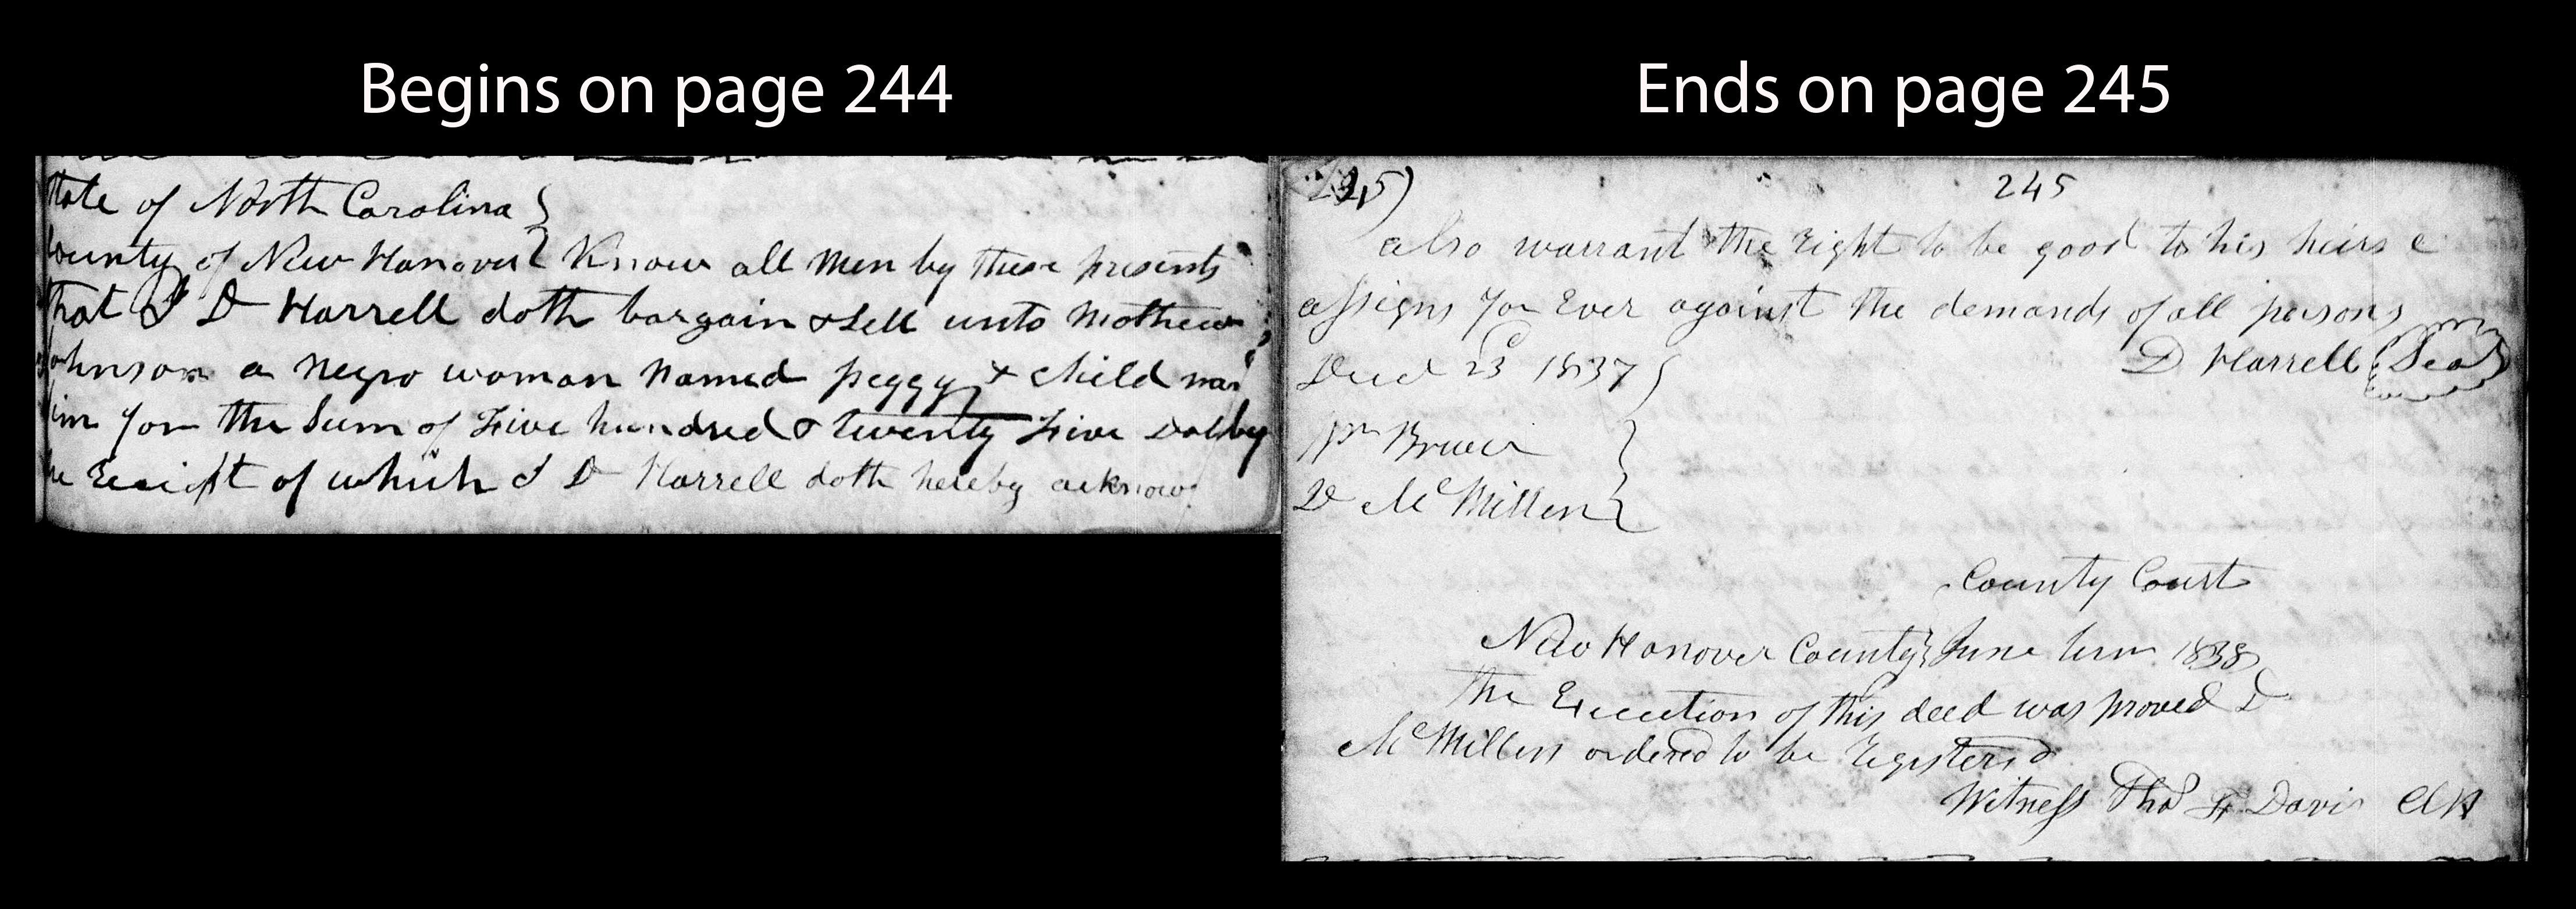 Begins on page 244
tate of North Carolina }
County of New Hanover } Know all Men by these presents
that I D Harrell doth bargain & Sell unto Mathew
ohnson a Negro woman Named peggy & Child na
for the Sum of Five hundred & twenty Five
he Receipt of which I D Harrell doth hereby acknow
Ends on page 245
245) 245
also warrant the right to be good to his heirs &
assigns for Ever against the demands of all persons
23 1837 D Harrell Seal
D McMillen
County Court
New Hanover County } June term 1838
The Execution of this deed was proved D
McMillen ordered to be registered
Witness Thos F Davis Clk